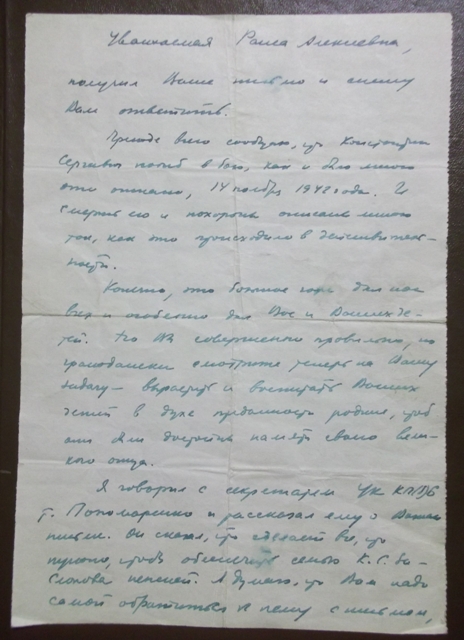 Уважаемая Раиса Алексеевна,
получил Ваше письмо и спешу
Вам ответить.
Прежде всего сообщаю, что Константин
Сергеевич погиб в бою, как и было мною
описано, 14 ноября 1942 года. И
смерть его и похороны описаны мною
так, как это происходило в действитель-
ности.
Конечно, это большое горе для нас
всех и особенно для Вас и Ваших де-
тей. Но Вы совершенно правильно, по
граждански смотрите теперь на Вашу
задачу — вырастить и воспитать Ваших
детей в духе преданности родине, чтоб
они были достойны памяти своего вели-
кого отца.
Я говорил с секретарем ЦК КП(б)Б
т. Пономаренко и рассказал ему о Вашем
письме. Он сказал, что сделает все, что
нужно, чтобы обеспечить семью К. С. За-
слонова пенсией. Я думаю, что Вам надо
самой обратиться к нему с письмом,